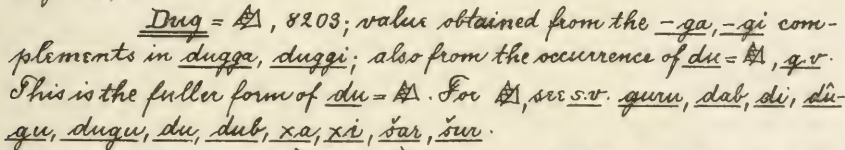 Dug = 𒄭, 8203; value obtained from the -ga, -gi com-
plements in dugga, duggi; also from the occurrence of du = 𒄭, q.v.
This is the fuller form of du = 𒄭. For 𒄭, see s.v. guru, dab, di, dû-
gu, dugu, du, dub, xa, xi, šar, šur.